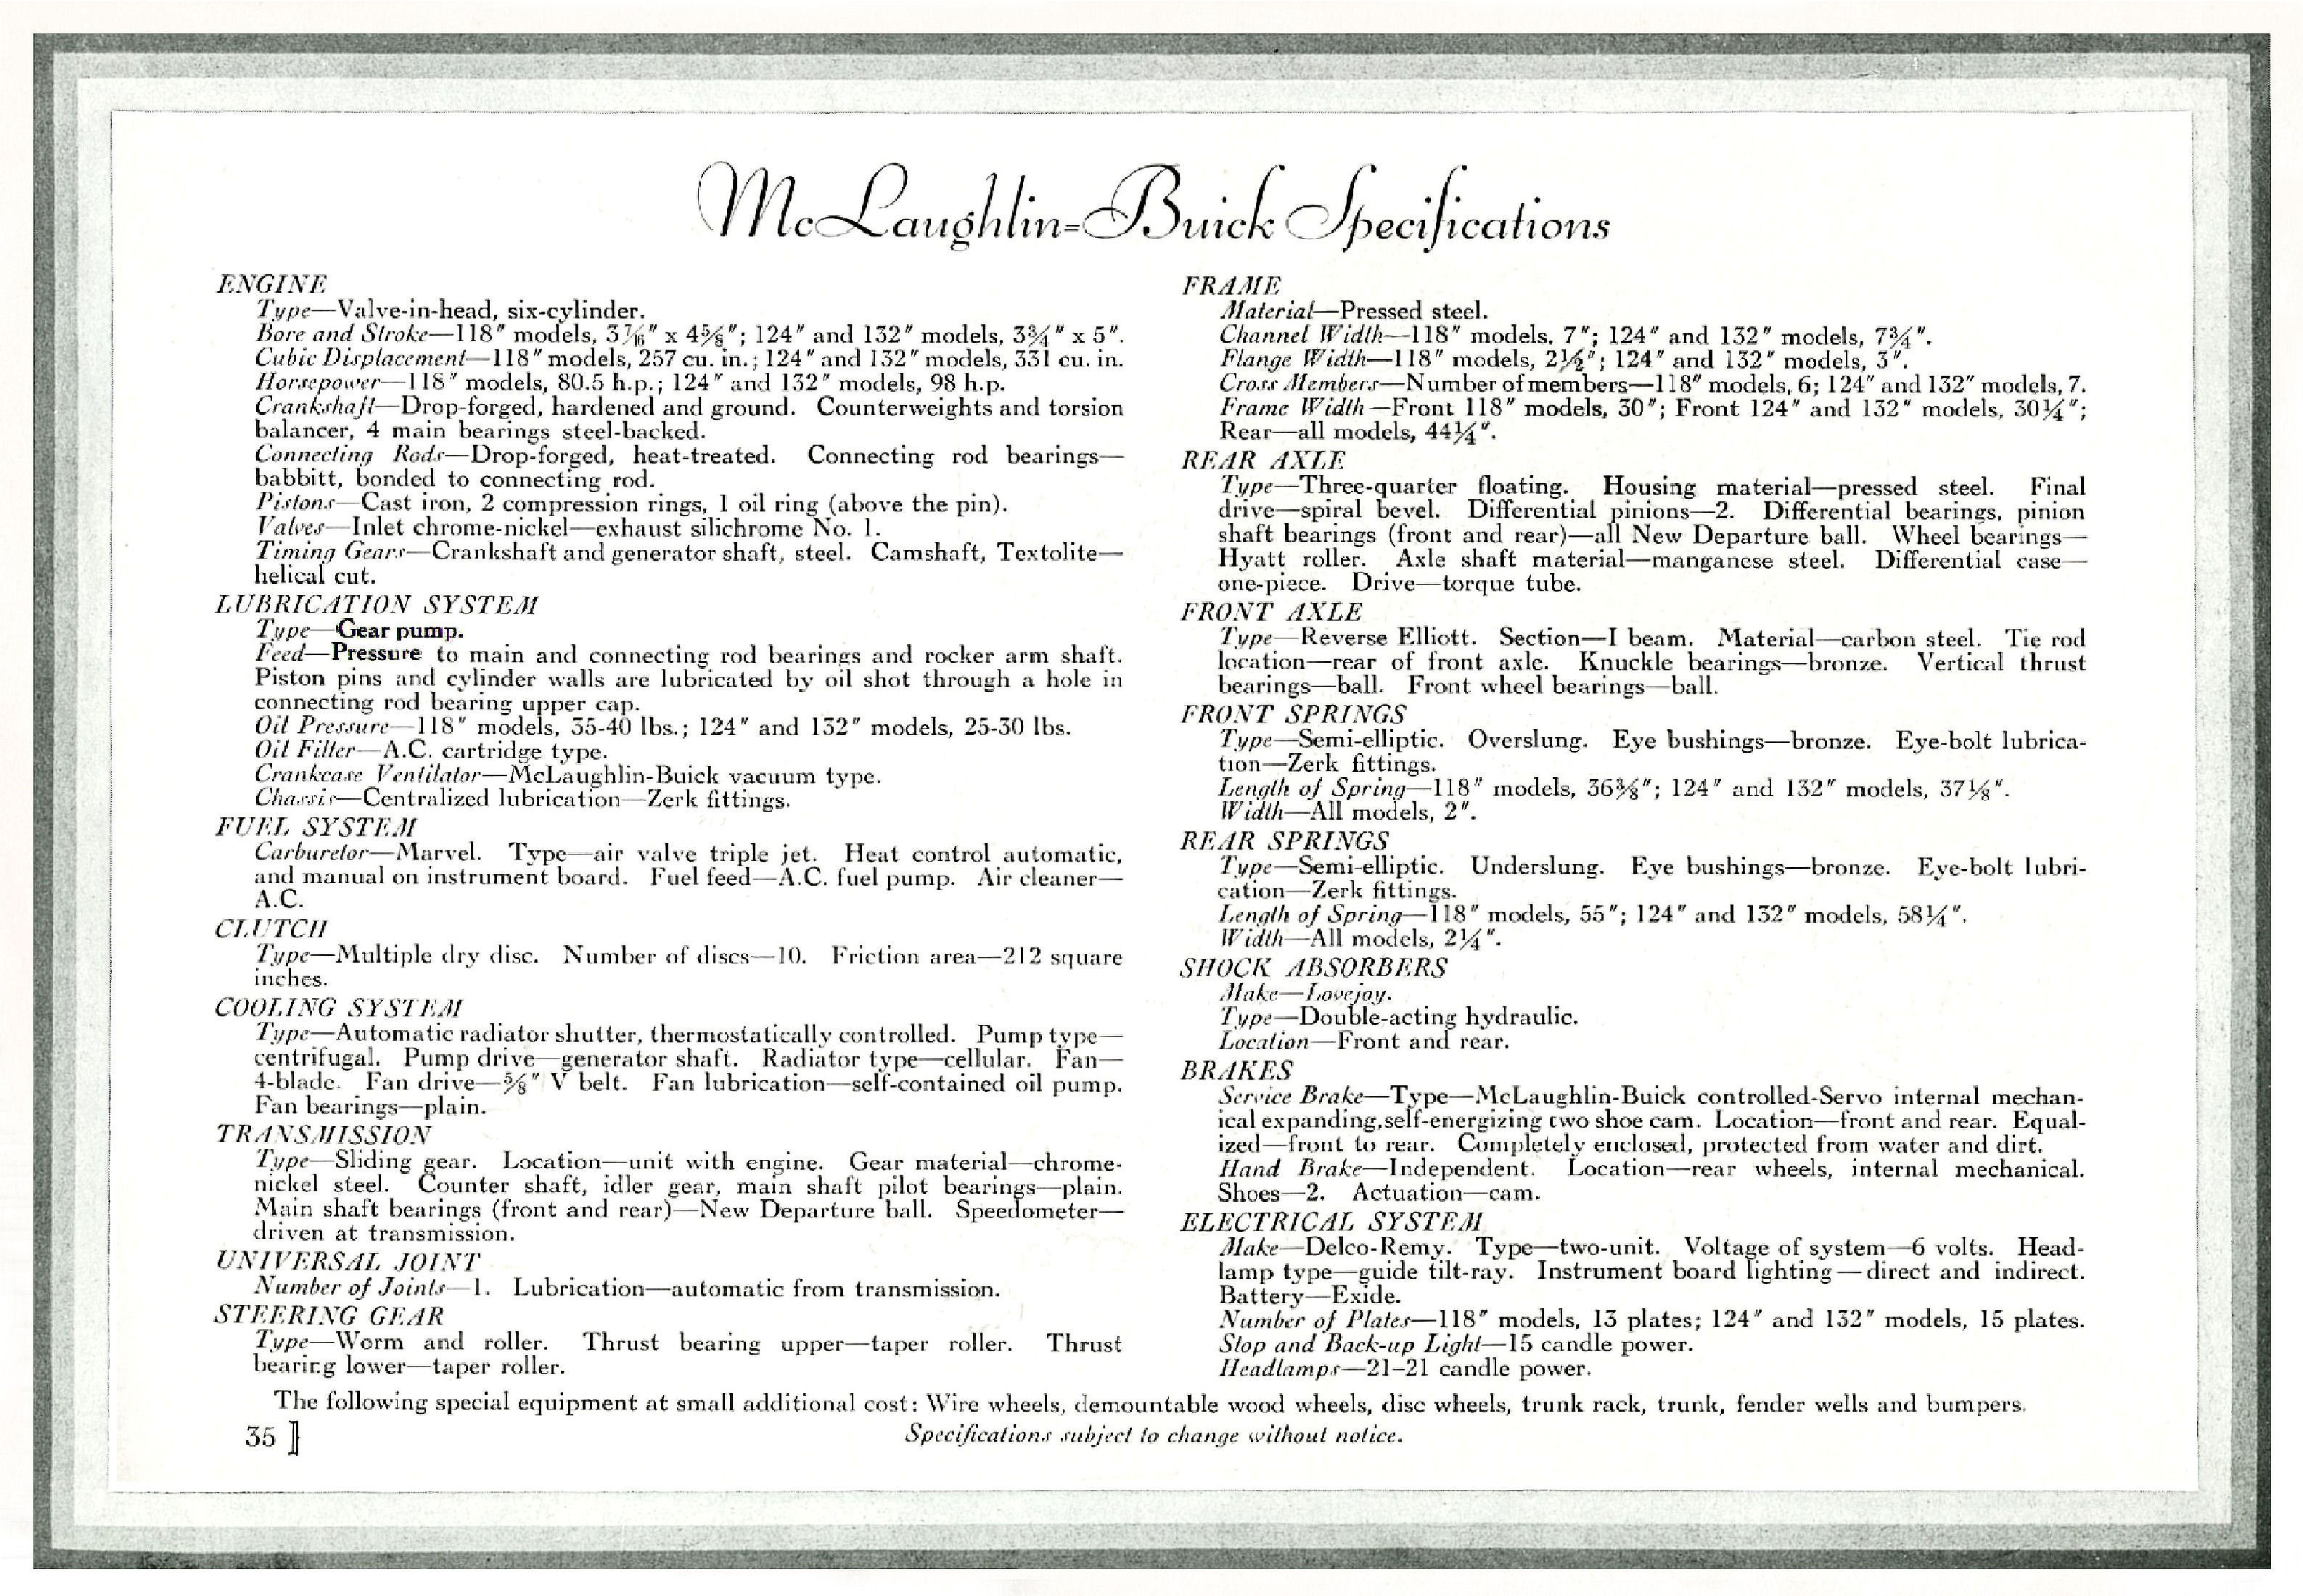 McLaughlin-Buick Specifications
ENGINE
Type—Valve-in-head, six-cylinder.
Bore and Stroke—118″ models, 3 7/16″ x 4⅝″; 124″ and 132″ models, 3¾″ x 5″.
Cubic Displacement—118″ models, 257 cu. in.; 124″ and 132″ models, 331 cu. in.
Horsepower—118″ models, 80.5 h.p.; 124″ and 132″ models, 98 h.p.
Crankshaft—Drop-forged, hardened and ground. Counterweights and torsion
balancer, 4 main bearings steel-backed.
Connecting Rods—Drop-forged, heat-treated. Connecting rod bearings—
babbitt, bonded to connecting rod.
Pistons—Cast iron, 2 compression rings, 1 oil ring (above the pin).
Valves—Inlet chrome-nickel—exhaust silichrome No. 1.
Timing Gears—Crankshaft and generator shaft, steel. Camshaft, Textolite—
helical cut.
LUBRICATION SYSTEM
Type—Gear pump.
Feed—Pressure to main and connecting rod bearings and rocker arm shaft.
Piston pins and cylinder walls are lubricated by oil shot through a hole in
connecting rod bearing upper cap.
Oil Pressure—118″ models, 35-40 lbs.; 124″ and 132″ models, 25-30 lbs.
Oil Filter—A.C. cartridge type.
Crankcase Ventilator—McLaughlin-Buick vacuum type.
Chassis—Centralized lubrication—Zerk fittings.
FUEL SYSTEM
Carburetor—Marvel. Type—air valve triple jet. Heat control automatic,
and manual on instrument board. Fuel feed—A.C. fuel pump. Air cleaner—
A.C.
CLUTCH
Type—Multiple dry disc. Number of discs—10. Friction area—212 square
inches.
COOLING SYSTEM
Type—Automatic radiator shutter, thermostatically controlled. Pump type—
centrifugal. Pump drive—generator shaft. Radiator type—cellular. Fan—
4-blade. Fan drive—⅝″ V belt. Fan lubrication—self-contained oil pump.
Fan bearings—plain.
TRANSMISSION
Type—Sliding gear. Location—unit with engine. Gear material—chrome-
nickel steel. Counter shaft, idler gear, main shaft pilot bearings—plain.
Main shaft bearings (front and rear)—New Departure ball. Speedometer—
driven at transmission.
UNIVERSAL JOINT
Number of Joints—1. Lubrication—automatic from transmission.
STEERING GEAR
Type—Worm and roller. Thrust bearing upper—taper roller. Thrust
bearing lower—taper roller.
FRAME
Material—Pressed steel.
Channel Width—118″ models, 7″; 124″ and 132″ models, 7¾″.
Flange Width—118″ models, 2½″; 124″ and 132″ models, 3″.
Cross Members—Number of members—118″ models, 6; 124″ and 132″ models, 7.
Frame Width—Front 118″ models, 30″; Front 124″ and 132″ models, 30¼″;
Rear—all models, 44¼″.
REAR AXLE
Type—Three-quarter floating. Housing material—pressed steel. Final
drive—spiral bevel. Differential pinions—2. Differential bearings, pinion
shaft bearings (front and rear)—all New Departure ball. Wheel bearings—
Hyatt roller. Axle shaft material—manganese steel. Differential case—
one-piece. Drive—torque tube.
FRONT AXLE
Type—Reverse Elliott. Section—I beam. Material—carbon steel. Tie rod
location—rear of front axle. Knuckle bearings—bronze. Vertical thrust
bearings—ball. Front wheel bearings—ball.
FRONT SPRINGS
Type—Semi-elliptic. Overslung. Eye bushings—bronze. Eye-bolt lubrica-
tion—Zerk fittings.
Length of Spring—118″ models, 36⅜″; 124″ and 132″ models, 37⅛″.
Width—All models, 2″.
REAR SPRINGS
Type—Semi-elliptic. Underslung. Eye bushings—bronze. Eye-bolt lubri-
cation—Zerk fittings.
Length of Spring—118″ models, 55″; 124″ and 132″ models, 58¼″.
Width—All models, 2¼″.
SHOCK ABSORBERS
Make—Lovejoy.
Type—Double-acting hydraulic.
Location—Front and rear.
BRAKES
Service Brake—Type—McLaughlin-Buick controlled-Servo internal mechan-
ical expanding, self-energizing two shoe cam. Location—front and rear. Equal-
ized—front to rear. Completely enclosed, protected from water and dirt.
Hand Brake—Independent. Location—rear wheels, internal mechanical.
Shoes—2. Actuation—cam.
ELECTRICAL SYSTEM
Make—Delco-Remy. Type—two-unit. Voltage of system—6 volts. Head-
lamp type—guide tilt-ray. Instrument board lighting—direct and indirect.
Battery—Exide.
Number of Plates—118″ models, 13 plates; 124″ and 132″ models, 15 plates.
Stop and Back-up Light—15 candle power.
Headlamps—21-21 candle power.
The following special equipment at small additional cost: Wire wheels, demountable wood wheels, disc wheels, trunk rack, trunk, fender wells and bumpers.
35 ]
Specifications subject to change without notice.